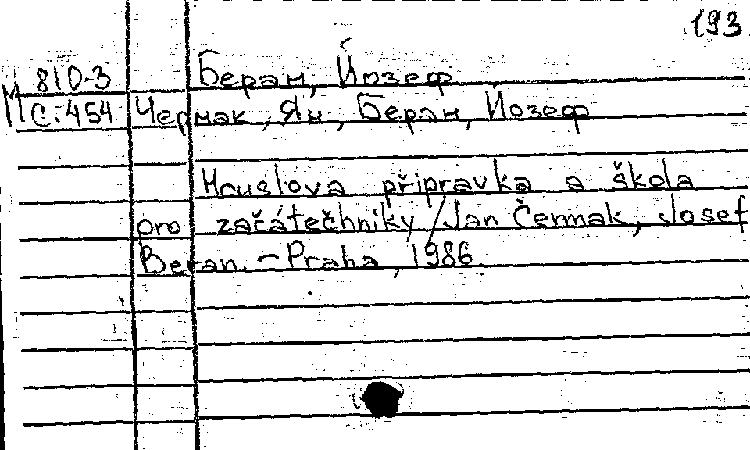 193
М 810-3 Беран, Йозеф
С.454 Чермак, Ян, Беран, Йозеф
Houslova připravka a škola
pro začátečniky / Jan Čermak, Josef
Beran. - Praha, 1986.